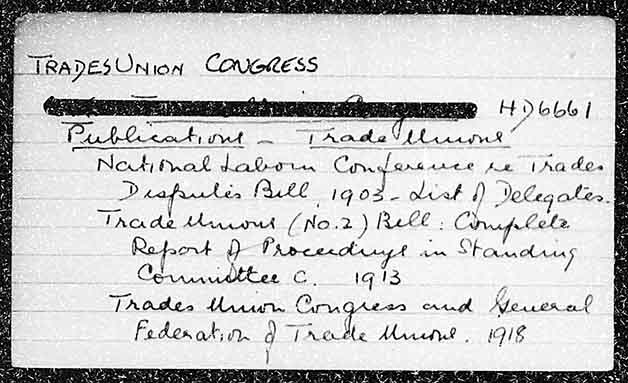 TRADES UNION CONGRESS
HD6661
Publications - Trade Unions
National Labour Conference re Trades
Disputes Bill, 1903 - List of Delegates.
Trade Unions (No.2) Bill: Complete
Report of Proceedings in Standing
Committee C. 1913
Trades Union Congress and General
Federation of Trade Unions. 1918